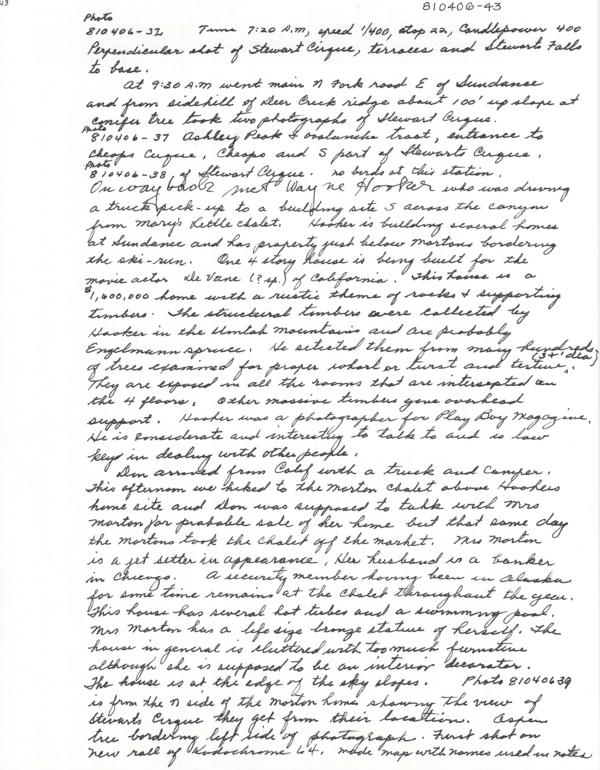 810406-43
Photo
810406-32 Time 7:20 A.M, speed 1/400, stop 22, Candlepower 400
Perpendicular shot of Stewart Cirque, terraces and Stewarts Falls
to base.
At 9:30 A.M went main N Fork road E of Sundance
and from sidehill of Deer Creek ridge about 100' up slope at
conifer tree took two photographs of Stewart Cirque.
Photo
810406-37 Ashley Peak & avalanche tract, entrance to
Cheops Cirque, Cheops and S part of Stewarts Cirque.
Photo
810406-38, of Stewart Cirque. no birds at this station.
On way back met Wayne Hooker who was driving
a truck pick-up to a building site S across the canyon
from Mary's Little Chalet. Hooker is building several homes
at Sundance and has property just below Mortons bordering
the ski-run. One 4 story house is being built for the
movie actor De Vane (? sp.) of California. This house is a
$1,600,000 home with a rustic theme of rocks & supporting
timbers. The structural timbers were collected by
Hooker in the Uintah Mountains and are probably
Engelmann spruce. He selected them from many hundreds
of trees examined for proper whorl or twist and texture. (3+' dia)
They are exposed in all the rooms that are intersepted on
the 4 floors. Other massive timbers gave overhead
support. Hooker was a photographer for Play Boy Magazine.
He is considerate and interesting to talk to and is low
keyed in dealing with other people.
Don arrived from Calif with a truck and camper.
This afternoon we hiked to the Morton Chalet above Hookers
home site and Don was supposed to talk with Mrs
Morton for probable sale of her home but that same day
the Mortons took the Chalet off the market. Mrs Morton
is a jet setter in appearance, Her husband is a banker
in Chicago. A security member having been in Alaska
for some time remains at the Chalet throughout the year.
This house has several hot tubes and a swimming pool.
Mrs Morton has a life size bronze statue of herself. The
house in general is cluttered with too much furniture
although she is supposed to be an interior decorator.
The house is at the edge of the sky slopes. Photo 81040639
is from the N side of the Morton home showing the view of
Stewarts Cirque they get from their location. Aspen
tree bordering left side of photograph. First shot on
new roll of Kodochrome 64. made map with names used in notes